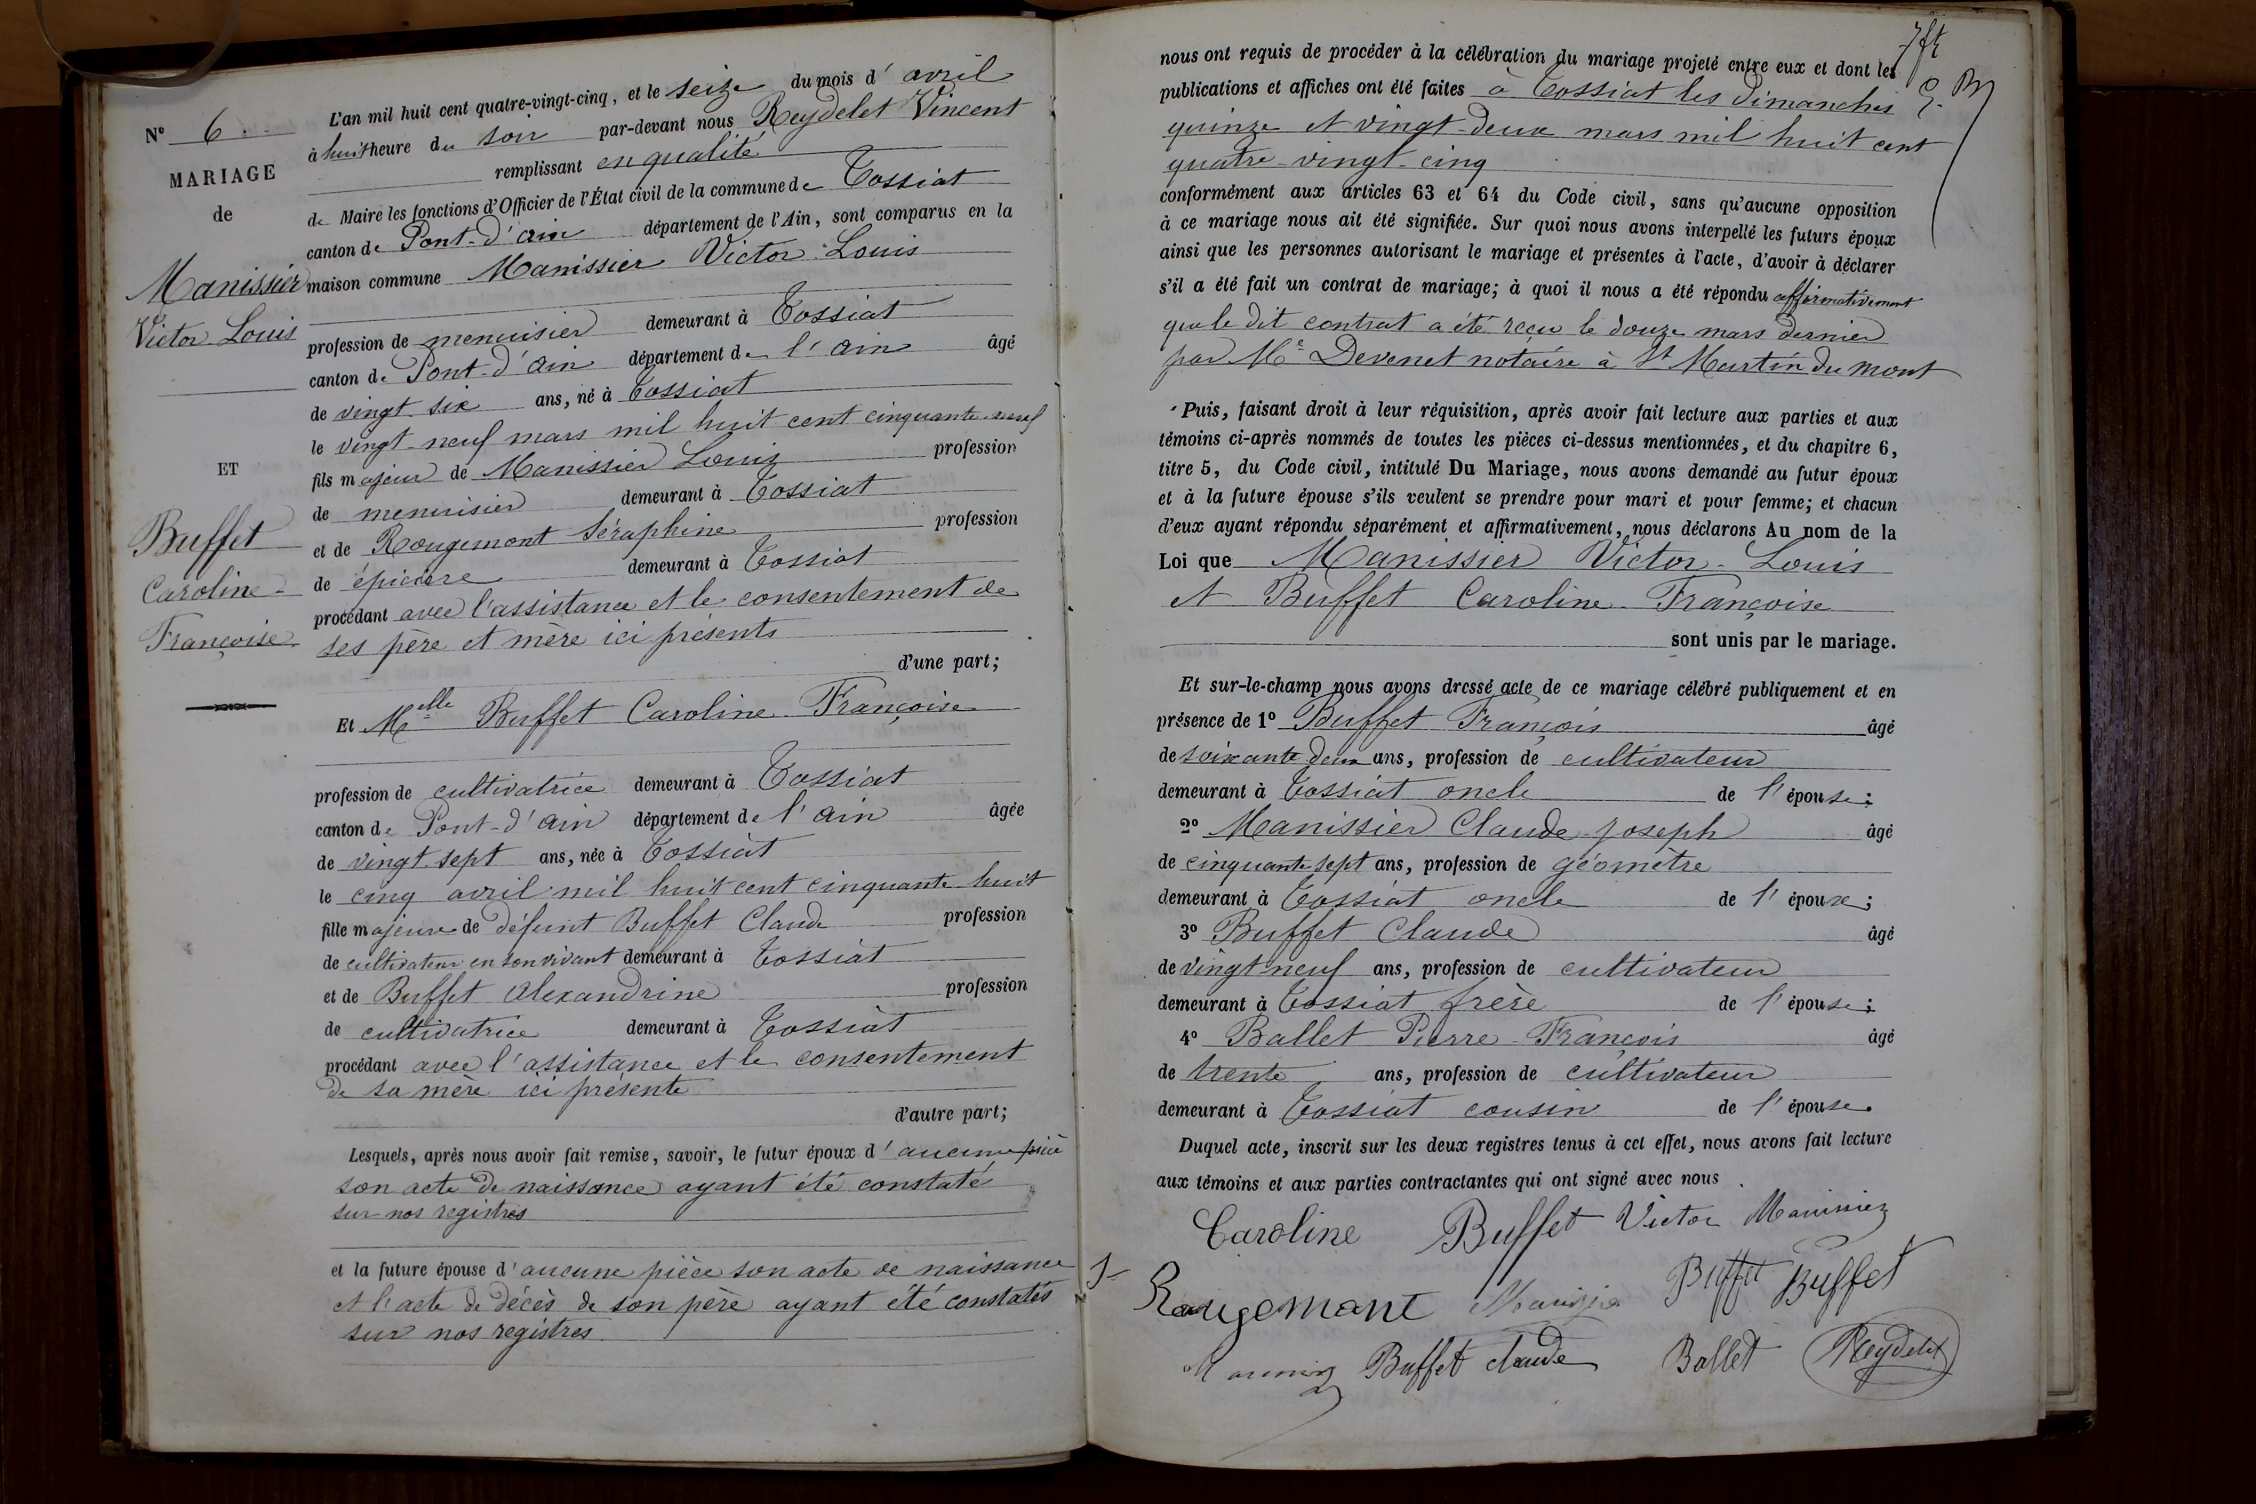 N° 6.
MARIAGE
de
Manissier
Victor Louis
ET
Buffet
Caroline
Françoise
L'an mil huit cent quatre-vingt-cinq, et le seize du mois d'avril
à huit heure du soir par-devant nous Reydelet Vincent
remplissant en qualité
de Maire les fonctions d'Officier de l'État civil de la commune de Tossiat
canton de Pont-d'ain département de l'Ain, sont comparus en la
maison commune Manissier Victor Louis
profession de menuisier demeurant à Tossiat
canton de Pont-d'ain département de l'ain âgé
de vingt six ans, né à Tossiat
le vingt neuf mars mil huit cent cinquante neuf
fils majeur de Manissier Louis profession
de menuisier demeurant à Tossiat
et de Rougemont Séraphine profession
de épicière demeurant à Tossiat
procédant avec l'assistance et le consentement de
ses père et mère ici présents
d'une part;
Et Melle Buffet Caroline Françoise
profession de cultivatrice demeurant à Tossiat
canton de Pont-d'ain département de l'ain âgée
de vingt sept ans, née à Tossiat
le cinq avril mil huit cent cinquante huit
fille majeure de défunt Buffet Claude profession
de cultivateur en son vivant demeurant à Tossiat
et de Buffet Alexandrine profession
de cultivatrice demeurant à Tossiat
procédant avec l'assistance et le consentement
de sa mère ici présente
d'autre part;
Lesquels, après nous avoir fait remise, savoir, le futur époux d'aucune pièce
son acte de naissance ayant été constaté
sur nos registres
et la future épouse d'aucune pièce son acte de naissance
et l'acte de décès de son père ayant été constatés
sur nos registres
nous ont requis de procéder à la célébration du mariage projeté entre eux et dont les
publications et affiches ont été faites à Tossiat les dimanches
quinze et vingt-deux mars mil huit cent
quatre-vingt-cinq
conformément aux articles 63 et 64 du Code civil, sans qu'aucune opposition
à ce mariage nous ait été signifiée. Sur quoi nous avons interpellé les futurs époux
ainsi que les personnes autorisant le mariage et présentes à l'acte, d'avoir à déclarer
s'il a été fait un contrat de mariage; à quoi il nous a été répondu affirmativement
que le dit contrat a été reçu le douze mars dernier
par Me Devenet notaire à St Martin du mont
Puis, faisant droit à leur réquisition, après avoir fait lecture aux parties et aux
témoins ci-après nommés de toutes les pièces ci-dessus mentionnées, et du chapitre 6,
titre 5, du Code civil, intitulé Du Mariage, nous avons demandé au futur époux
et à la future épouse s'ils veulent se prendre pour mari et pour femme; et chacun
d'eux ayant répondu séparément et affirmativement, nous déclarons Au nom de la
Loi que Manissier Victor-Louis
et Buffet Caroline Françoise
sont unis par le mariage.
Et sur-le-champ nous avons dressé acte de ce mariage célébré publiquement et en
présence de 1° Buffet François âgé
de soixante deux ans, profession de cultivateur
demeurant à Tossiat oncle de l'épouse;
2° Manissier Claude Joseph âgé
de cinquante-sept ans, profession de géomètre
demeurant à Tossiat oncle de l'époux;
3° Buffet Claude âgé
de vingt neuf ans, profession de cultivateur
demeurant à Tossiat frère de l'épouse;
4° Ballet Pierre-François âgé
de trente ans, profession de cultivateur
demeurant à Tossiat cousin de l'épouse.
Duquel acte, inscrit sur les deux registres tenus à cet effet, nous avons fait lecture
aux témoins et aux parties contractantes qui ont signé avec nous
Caroline Buffet Victor Manissier
Rougemont Buffet Buffet
Buffet claude Ballet Reydelet